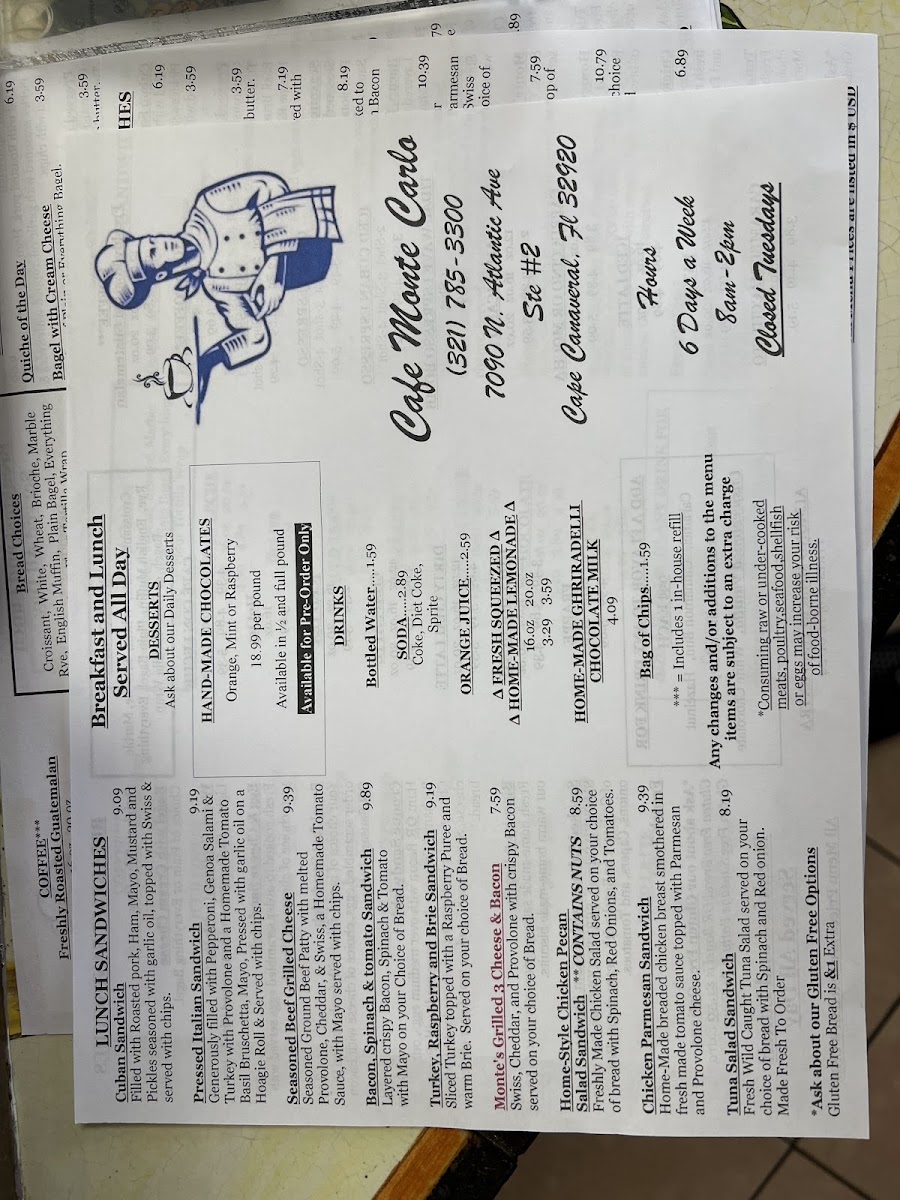 LUNCH SANDWICHES
Cuban Sandwich 9.09
Filled with Roasted pork, Ham, Mayo, Mustard and
Pickles seasoned with garlic oil, topped with Swiss &
served with chips.
Pressed Italian Sandwich 9.19
Generously filled with Pepperoni, Genoa Salami &
Turkey with Provolone and a Homemade Tomato
Basil Bruschetta, Mayo, Pressed with garlic oil on a
Hoagie Roll & Served with chips.
Seasoned Beef Grilled Cheese 9.39
Seasoned Ground Beef Patty with melted
Provolone, Cheddar, & Swiss, a Homemade Tomato
Sauce, with Mayo served with chips.
Bacon, Spinach & tomato Sandwich 9.89
Layered crispy Bacon, Spinach & Tomato
with Mayo on your Choice of Bread.
Turkey, Raspberry and Brie Sandwich 9.19
Sliced Turkey topped with a Raspberry Puree and
warm Brie. Served on your choice of Bread.
Monte's Grilled 3 Cheese & Bacon 7.59
Swiss, Cheddar, and Provolone with crispy Bacon
served on your choice of Bread.
Home-Style Chicken Pecan
Salad Sandwich ** CONTAINS NUTS 8.59
Freshly Made Chicken Salad served on your choice
of bread with Spinach, Red Onions, and Tomatoes.
Chicken Parmesan Sandwich 9.39
Home-Made breaded chicken breast smothered in
fresh made tomato sauce topped with Parmesan
and Provolone cheese.
Tuna Salad Sandwich 8.19
Fresh Wild Caught Tuna Salad served on your
choice of bread with Spinach and Red onion.
Made Fresh To Order
*Ask about our Gluten Free Options
Gluten Free Bread is &1 Extra
Breakfast and Lunch
Served All Day
DESSERTS
Ask about our Daily Desserts
HAND-MADE CHOCOLATES
Orange, Mint or Raspberry
18.99 per pound
Available in ½ and full pound
Available for Pre-Order Only
DRINKS
Bottled Water.....1.59
SODA.....2.89
Coke, Diet Coke,
Sprite
ORANGE JUICE.....2.59
∆ FRESH SQUEEZED ∆
∆ HOME-MADE LEMONADE ∆
16.oz 20.oz
3.29 3.59
HOME-MADE GHRIRADELLI
CHOCOLATE MILK
4.09
Bag of Chips.....1.59
*** = Includes 1 in-house refill
Any changes and/or additions to the menu
items are subject to an extra charge
*Consuming raw or under-cooked
meats, poultry,seafood,shellfish
or eggs may increase your risk
of food-borne illness.
Cafe Monte Carlo
(321) 785-3300
7090 N. Atlantic Ave
Ste #2
Cape Canaveral, Fl 32920
Hours
6 Days a Week
8am-2pm
Closed Tuesdays
COFFEE***
Freshly Roasted Guatemalan
Bread Choices
Croissant, White, Wheat, Brioche, Marble
Rye, English Muffin, Plain Bagel, Everything
Quiche of the Day 6.19
Bagel with Cream Cheese 3.59
3.59
HES
6.19
3.59
3.59
butter.
7.19
ed with
8.19
Bacon
10.39
armesan
Swiss
oice of
7.59
op of
10.79
choice
6.89
.89
are listed in $ USD